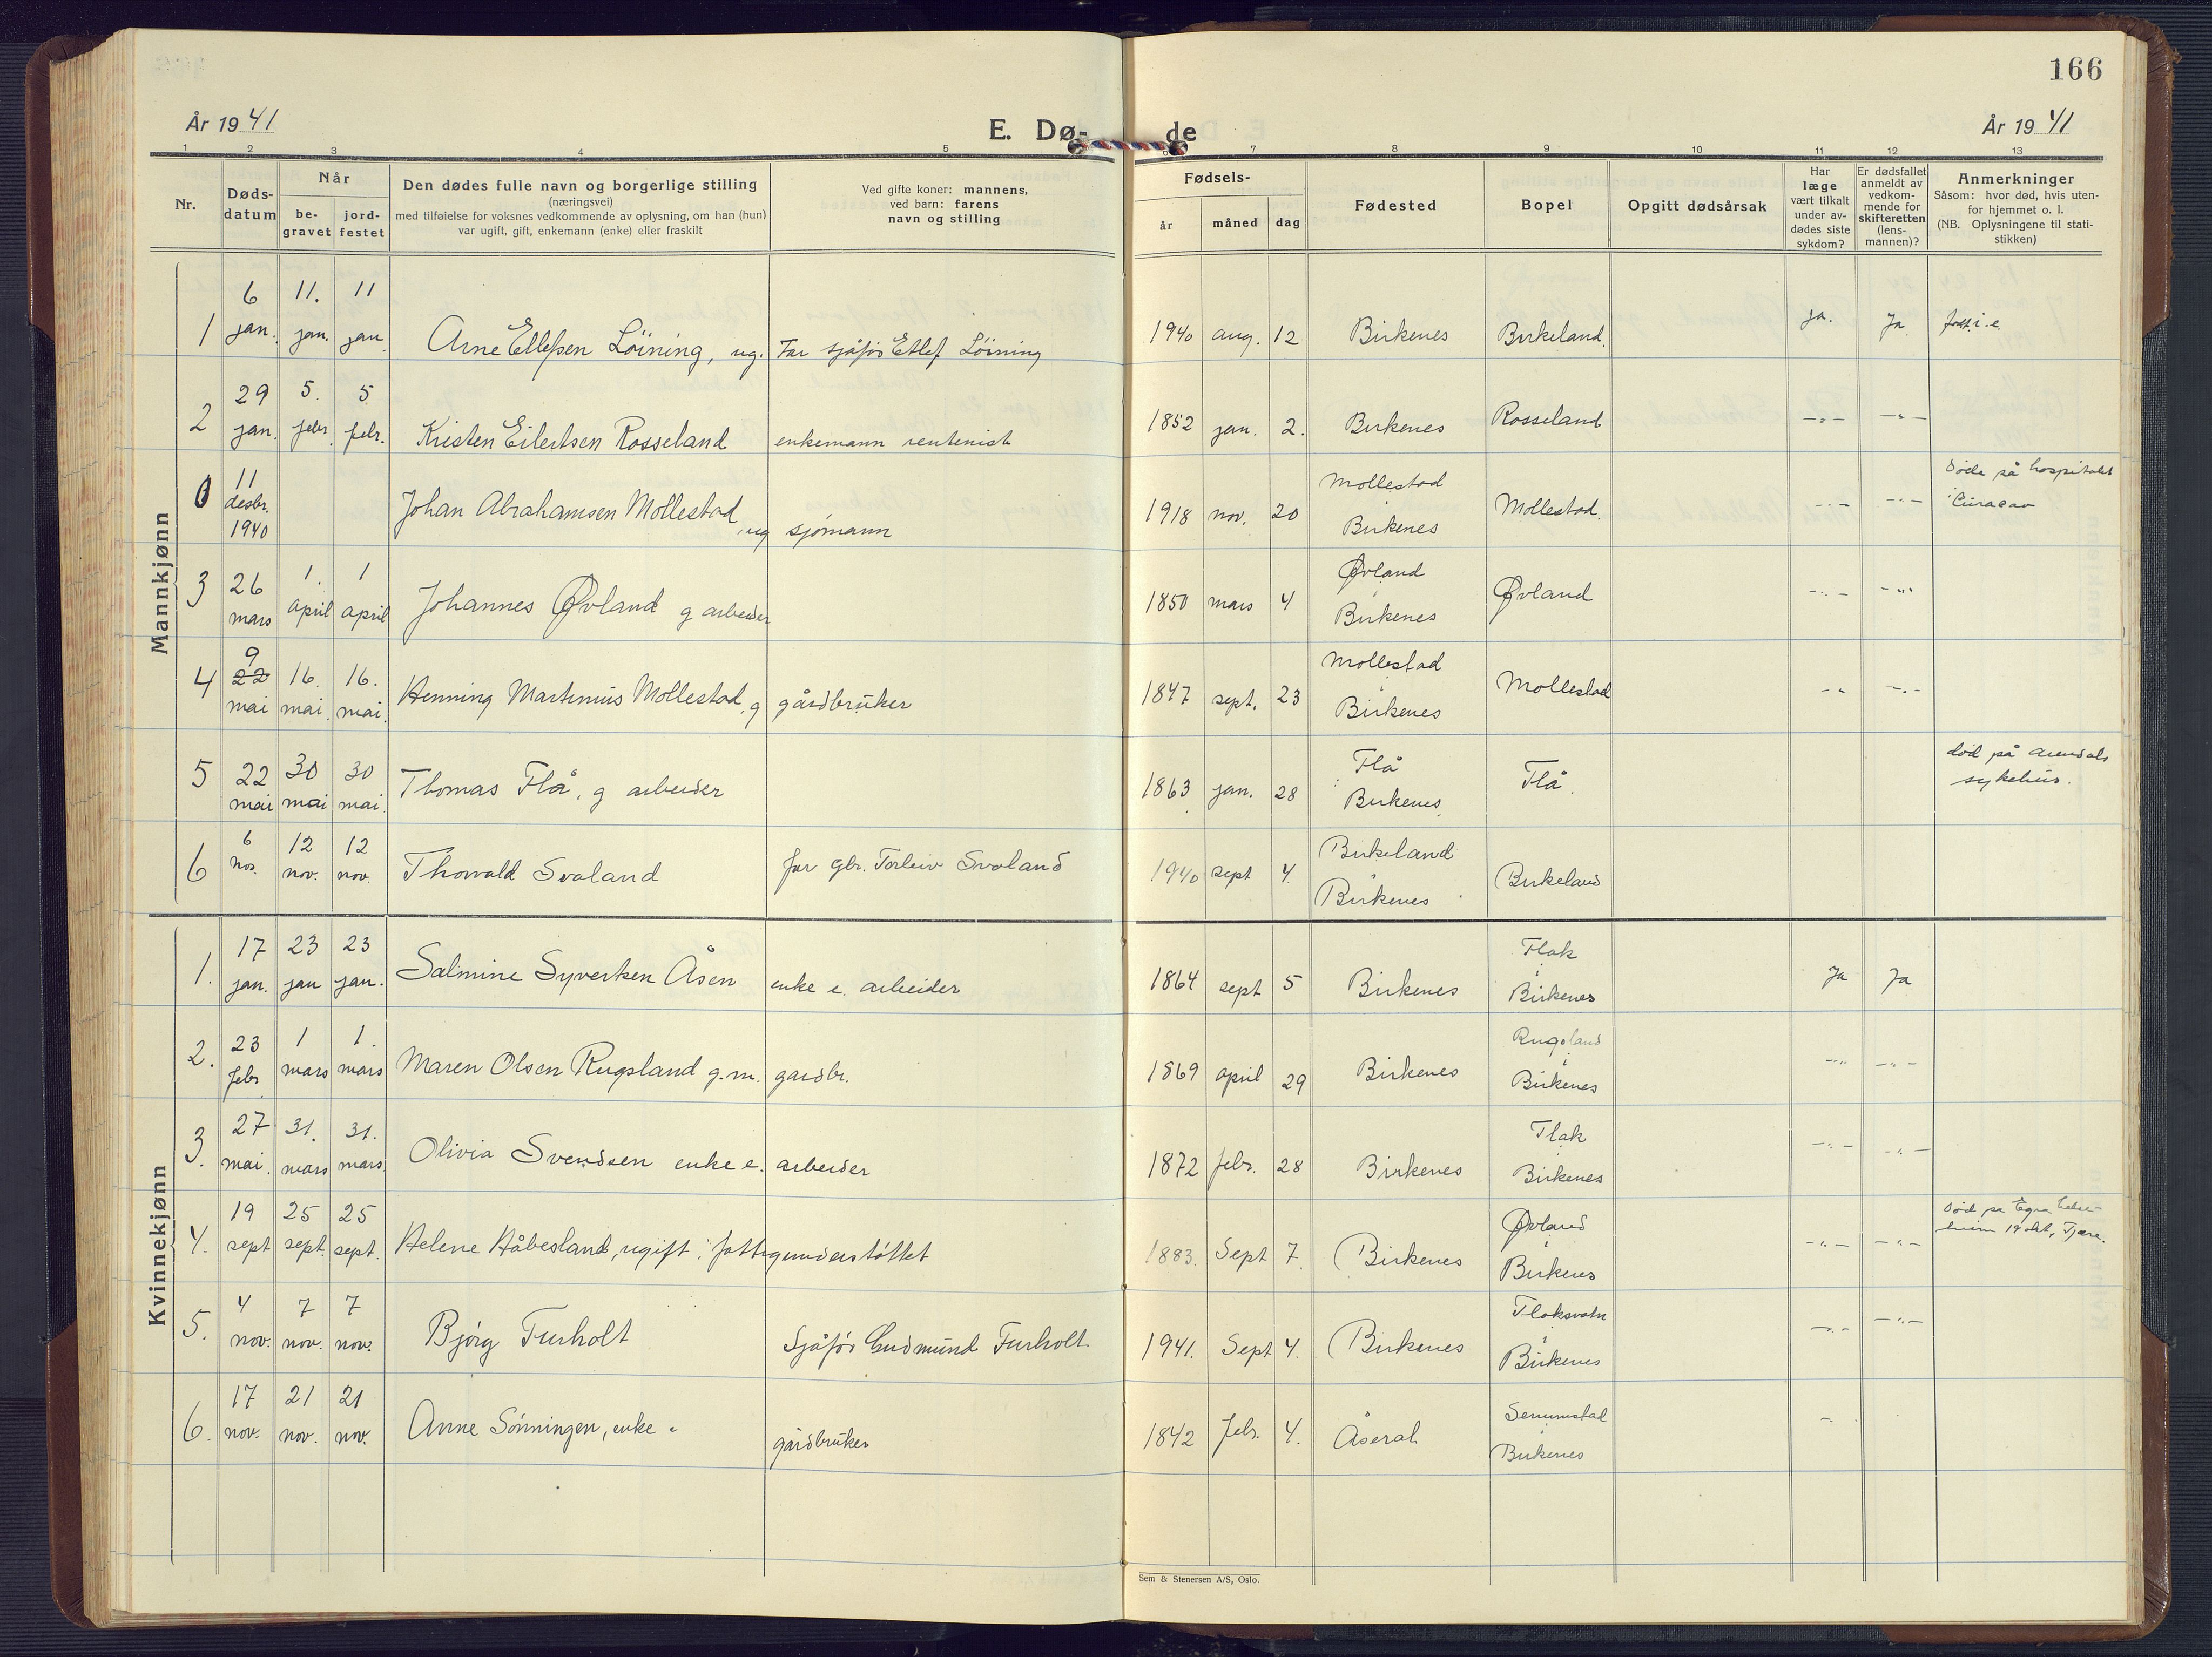 166
År 1941
E. Dø-
de
År 1941
1 2 3 4 5 6 7 8 9 10 11 12 13
Nr.
Døds-
datum
Når
be-
gravet
jord-
festet
Den dødes fulle navn og borgerlige stilling
(næringsvei)
med tilføielse for voksnes vedkommende av oplysning, om han (hun)
var ugift, gift, enkemann (enke) eller fraskilt
Ved gifte koner: mannens,
ved barn: farens
navn og stilling
Fødsels-
år
måned
dag
Fødested
Bopel
Opgitt dødsårsak
Har
læge
vært tilkalt
under av-
dødes siste
sykdom?
Er dødsfallet
anmeldt av
vedkom-
mende for
skifteretten
(lens-
mannen)?
Anmerkninger
Såsom: hvor død, hvis uten-
for hjemmet o. l.
(NB. Oplysningene til stati-
stikken)
Mannkjønn
1
6 11. 11
jan. jan. jan
Arne Ellefsen Löining, ug. Far sjåfør Ellef Löining
1940 aug. 12 Birkenes Birkeland. ja. Ja
2
29 5. 5
jan. febr. febr.
Kristen Eilertsen Rosseland enkemann rentenist
1852 jan. 2. Birkenes Rosseland -"- -"-
0
11
desbr.
1940
Johan Abrahamsen Mollestad
, ug sjømann
1918 nov. 20
Mollestad
Birkenes
Mollestad. -"- -"-
Døde på hospitalet
i Curacao
3
26 1. 1
mars april april
Johannes Øvland g arbeider
1850 mars 4
Øvland
Birkenes
Øvland -"- -"-
4
9
22 16. 16.
mai mai. mai.
Henning Martinius Mollestad, g gårdbruker
1847 sept. 23
Mollestad
i
Birkenes
Mollestad -"- -"-
5
22 30 30
mai mai mai.
Thomas Flå, g arbeider
1863 jan. 28
Flå
Birkenes
Flå.
død på Arendals
sykehus.
6
6 12 12
nov. nov. nov.
Thorvald Svaland far gbr. Torleiv Svaland
1940 sept 4.
Birkeland
Birkenes
Birkeland
Kvinnekjønn
1.
17 23 23
jan. jan jan.
Salmine Syvertsen Åsen enke e. arbeider
1864 sept 5 Birkenes
Flak
i
Birkenes
Ja Ja
2.
23 1 1.
febr mars mars
Maren Olsen Rugsland g.m. gardbr.
1869 april 29 Birkenes
Rugsland
i
Birkenes
-"- -"-
3.
27 31. 31.
mai. mars mars.
Olivia Svendsen enke e. arbeider
1872 febr. 28 Birkenes
Flak
Birkenes
-"- -"-
4.
19 25 25
sept sept. sept.
Helene Håbesland, ugift, fattigunderstøttet
1883. Sept 7. Birkenes
Øvland
i
Birkenes
-"- -"-
5.
4 7 7
nov. nov. nov.
Bjørg Furholt Sjåfør Gudmund Furholt
1941. Sept 4. Birkenes
Flaksvatn
i
Birkenes
-"- -"-
6.
17 21 21
nov. nov. nov.
Anne Sönningen, enke e gårdbruker
1842 febr. 4. Åseral
Senumstad
i
Birkenes
Sem & Stenersen A/S, Oslo.